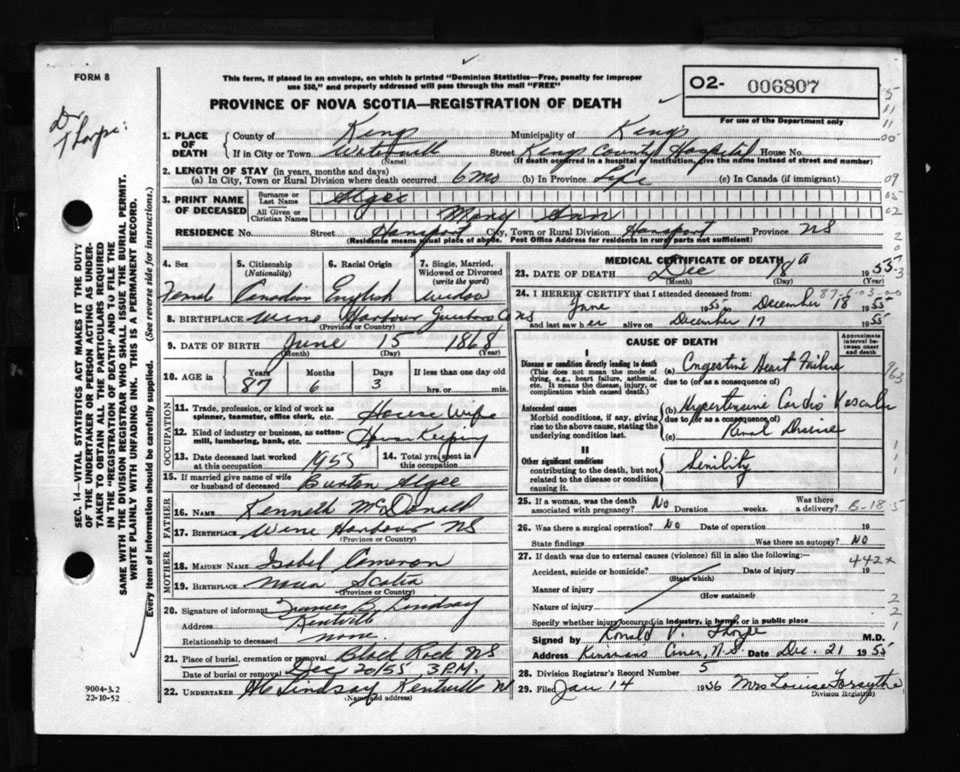 FORM 8
This form, if placed in an envelope, on which is printed "Dominion Statistics—Free, penalty for improper
use $50," and properly addressed will pass through the mail "FREE"
PROVINCE OF NOVA SCOTIA—REGISTRATION OF DEATH
O2- 006807
For use of the Department only
Dr
Thorpe:
1. PLACE OF DEATH County of Kings Municipality of Kings
If in City or Town Waterville Street Kings County Hospital House No.
(Name) (If death occurred in a hospital or institution, give the name instead of street and number)
2. LENGTH OF STAY (in years, months and days)
(a) In City, Town or Rural Division where death occurred 6 mo (b) In Province Life (c) In Canada (if immigrant)
3. PRINT NAME OF DECEASED
Surname or Last Name Algee
All Given or Christian Names Mary Ann
RESIDENCE No. Street Hantsport City, Town or Rural Division Hantsport Province NS
(Residence means usual place of abode. Post Office Address for residents in rural parts not sufficient)
4. Sex 5. Citizenship (Nationality) 6. Racial Origin 7. Single, Married, Widowed or Divorced (write the word)
Female Canadian English Widow
8. BIRTHPLACE Wine Harbour Guysboro Co NS
(Province or Country)
9. DATE OF BIRTH June 15 1868
(Month) (Day) (Year)
10. AGE in Years Months Days If less than one day old
87 6 3 hrs. or min.
OCCUPATION
11. Trade, profession, or kind of work as spinner, teamster, office clerk, etc. House Wife
12. Kind of industry or business, as cotton-mill, lumbering, bank, etc. House Keeping
13. Date deceased last worked at this occupation 1955 14. Total yrs. spent in this occupation
15. If married give name of wife or husband of deceased Burton Algee
FATHER
16. NAME Kenneth McDonald
17. BIRTHPLACE Wine Harbour NS
(Province or Country)
MOTHER
18. MAIDEN NAME Isabel Cameron
19. BIRTHPLACE Nova Scotia
(Province or Country)
20. Signature of informant Frances B. Lindsay
Address Kentville
Relationship to deceased none.
21. Place of burial, cremation or removal Black Rock NS
Date of burial or removal Dec 20/55 3 P.M.
22. UNDERTAKER Lindsay Kentville
MEDICAL CERTIFICATE OF DEATH
23. DATE OF DEATH Dec 18 1955
(Month) (Day) (Year)
24. I HEREBY CERTIFY that I attended deceased from:
June 1955 to December 18 1955
and last saw her alive on December 17 1955
CAUSE OF DEATH
Approximate interval between onset and death
I
Disease or condition directly leading to death
(This does not mean the mode of dying, e.g., heart failure, asthenia, etc. It means the disease, injury, or complication which caused death.)
(a) Congestive Heart Failure
due to (or as a consequence of)
Antecedent causes
Morbid conditions, if any, giving rise to the above cause, stating the underlying condition last.
(b) Hypertensive Cardio Vascular
due to (or as a consequence of)
(c) Renal Disease
II
Other significant conditions
contributing to the death, but not related to the disease or condition causing it.
Senility
25. If a woman, was the death associated with pregnancy? No Duration weeks. Was there a delivery?
26. Was there a surgical operation? No Date of operation 19
State findings Was there an autopsy? No
27. If death was due to external causes (violence) fill in also the following:—
442x
Accident, suicide or homicide? Date of injury 19
(State which)
Manner of injury
(How sustained)
Nature of injury
Whether injury occurred in industry, in home, or in public place
Signed by Ronald V. Thorpe M.D.
Address Kinsmans Corner, N.S. Date Dec. 21 1955
28. Division Registrar's Record Number 5
29. Filed Jan 14 1956 Mrs Louise Forsythe
Division Registrar
SEC. 14—VITAL STATISTICS ACT MAKES IT THE DUTY
OF THE UNDERTAKER OR PERSON ACTING AS UNDER-
TAKER TO OBTAIN ALL THE PARTICULARS REQUIRED
IN THE "REGISTRATION OF DEATH" AND TO FILE THE
SAME WITH THE DIVISION REGISTRAR WHO SHALL ISSUE THE BURIAL PERMIT.
WRITE PLAINLY WITH UNFADING INK. THIS IS A PERMANENT RECORD.
Every item of information should be carefully supplied. (See reverse side for instructions.)
9004-3.2
22-10-52